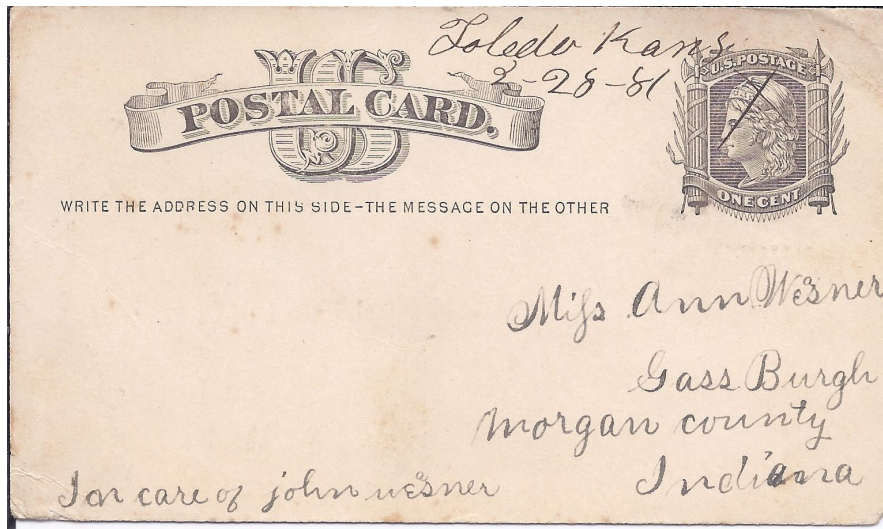 Toledo Kans
2-28-81
U.S. POSTAGE
US
POSTAL CARD.
ONE CENT
WRITE THE ADDRESS ON THIS SIDE-THE MESSAGE ON THE OTHER
Miss Ann Wesner
Gass Burgh
Morgan county
Indiana
In care of john wesner